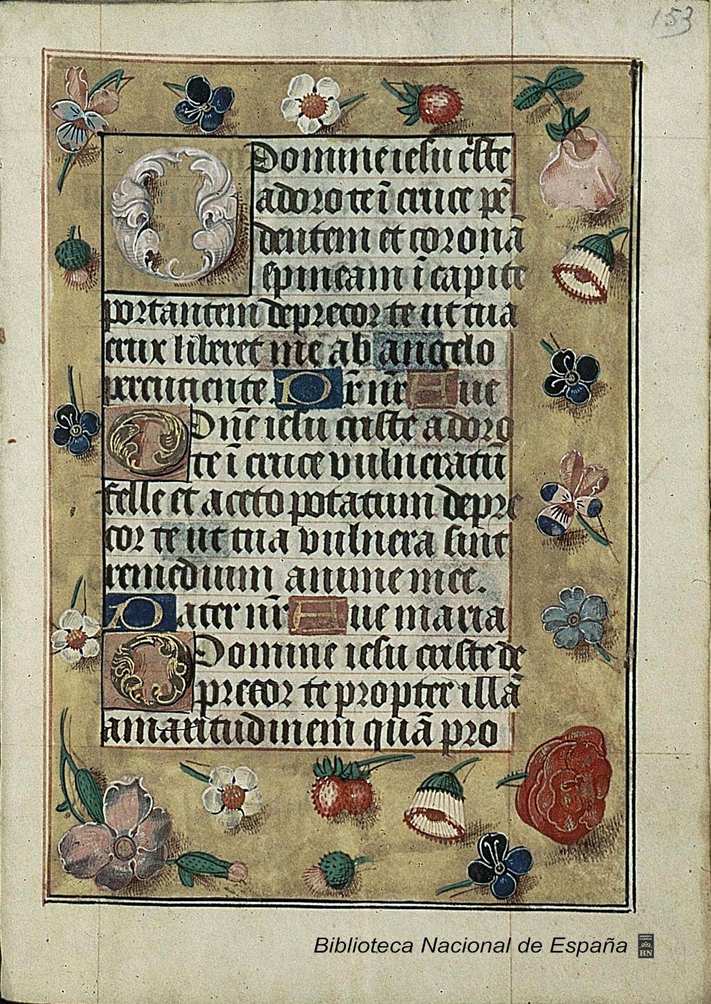 153
O Domine iesu c̄ste
adoro te ī cruce pē
dentem et coronā
spineam ī capite
portantem deprecor te ut tua
crux liberet me ab angelo
percuciente Pr̄ nr̄ Aue
O Dn̄e iesu criste adoro
te ī cruce vulneratū
felle et aceto potatum depre
cor te ut tua vulnera sint
remedium anime mee.
Pater nr̄ Aue maria
O Domine iesu criste de
precor te propter illā
amaritudinem quā pro
Biblioteca Nacional de España
BN